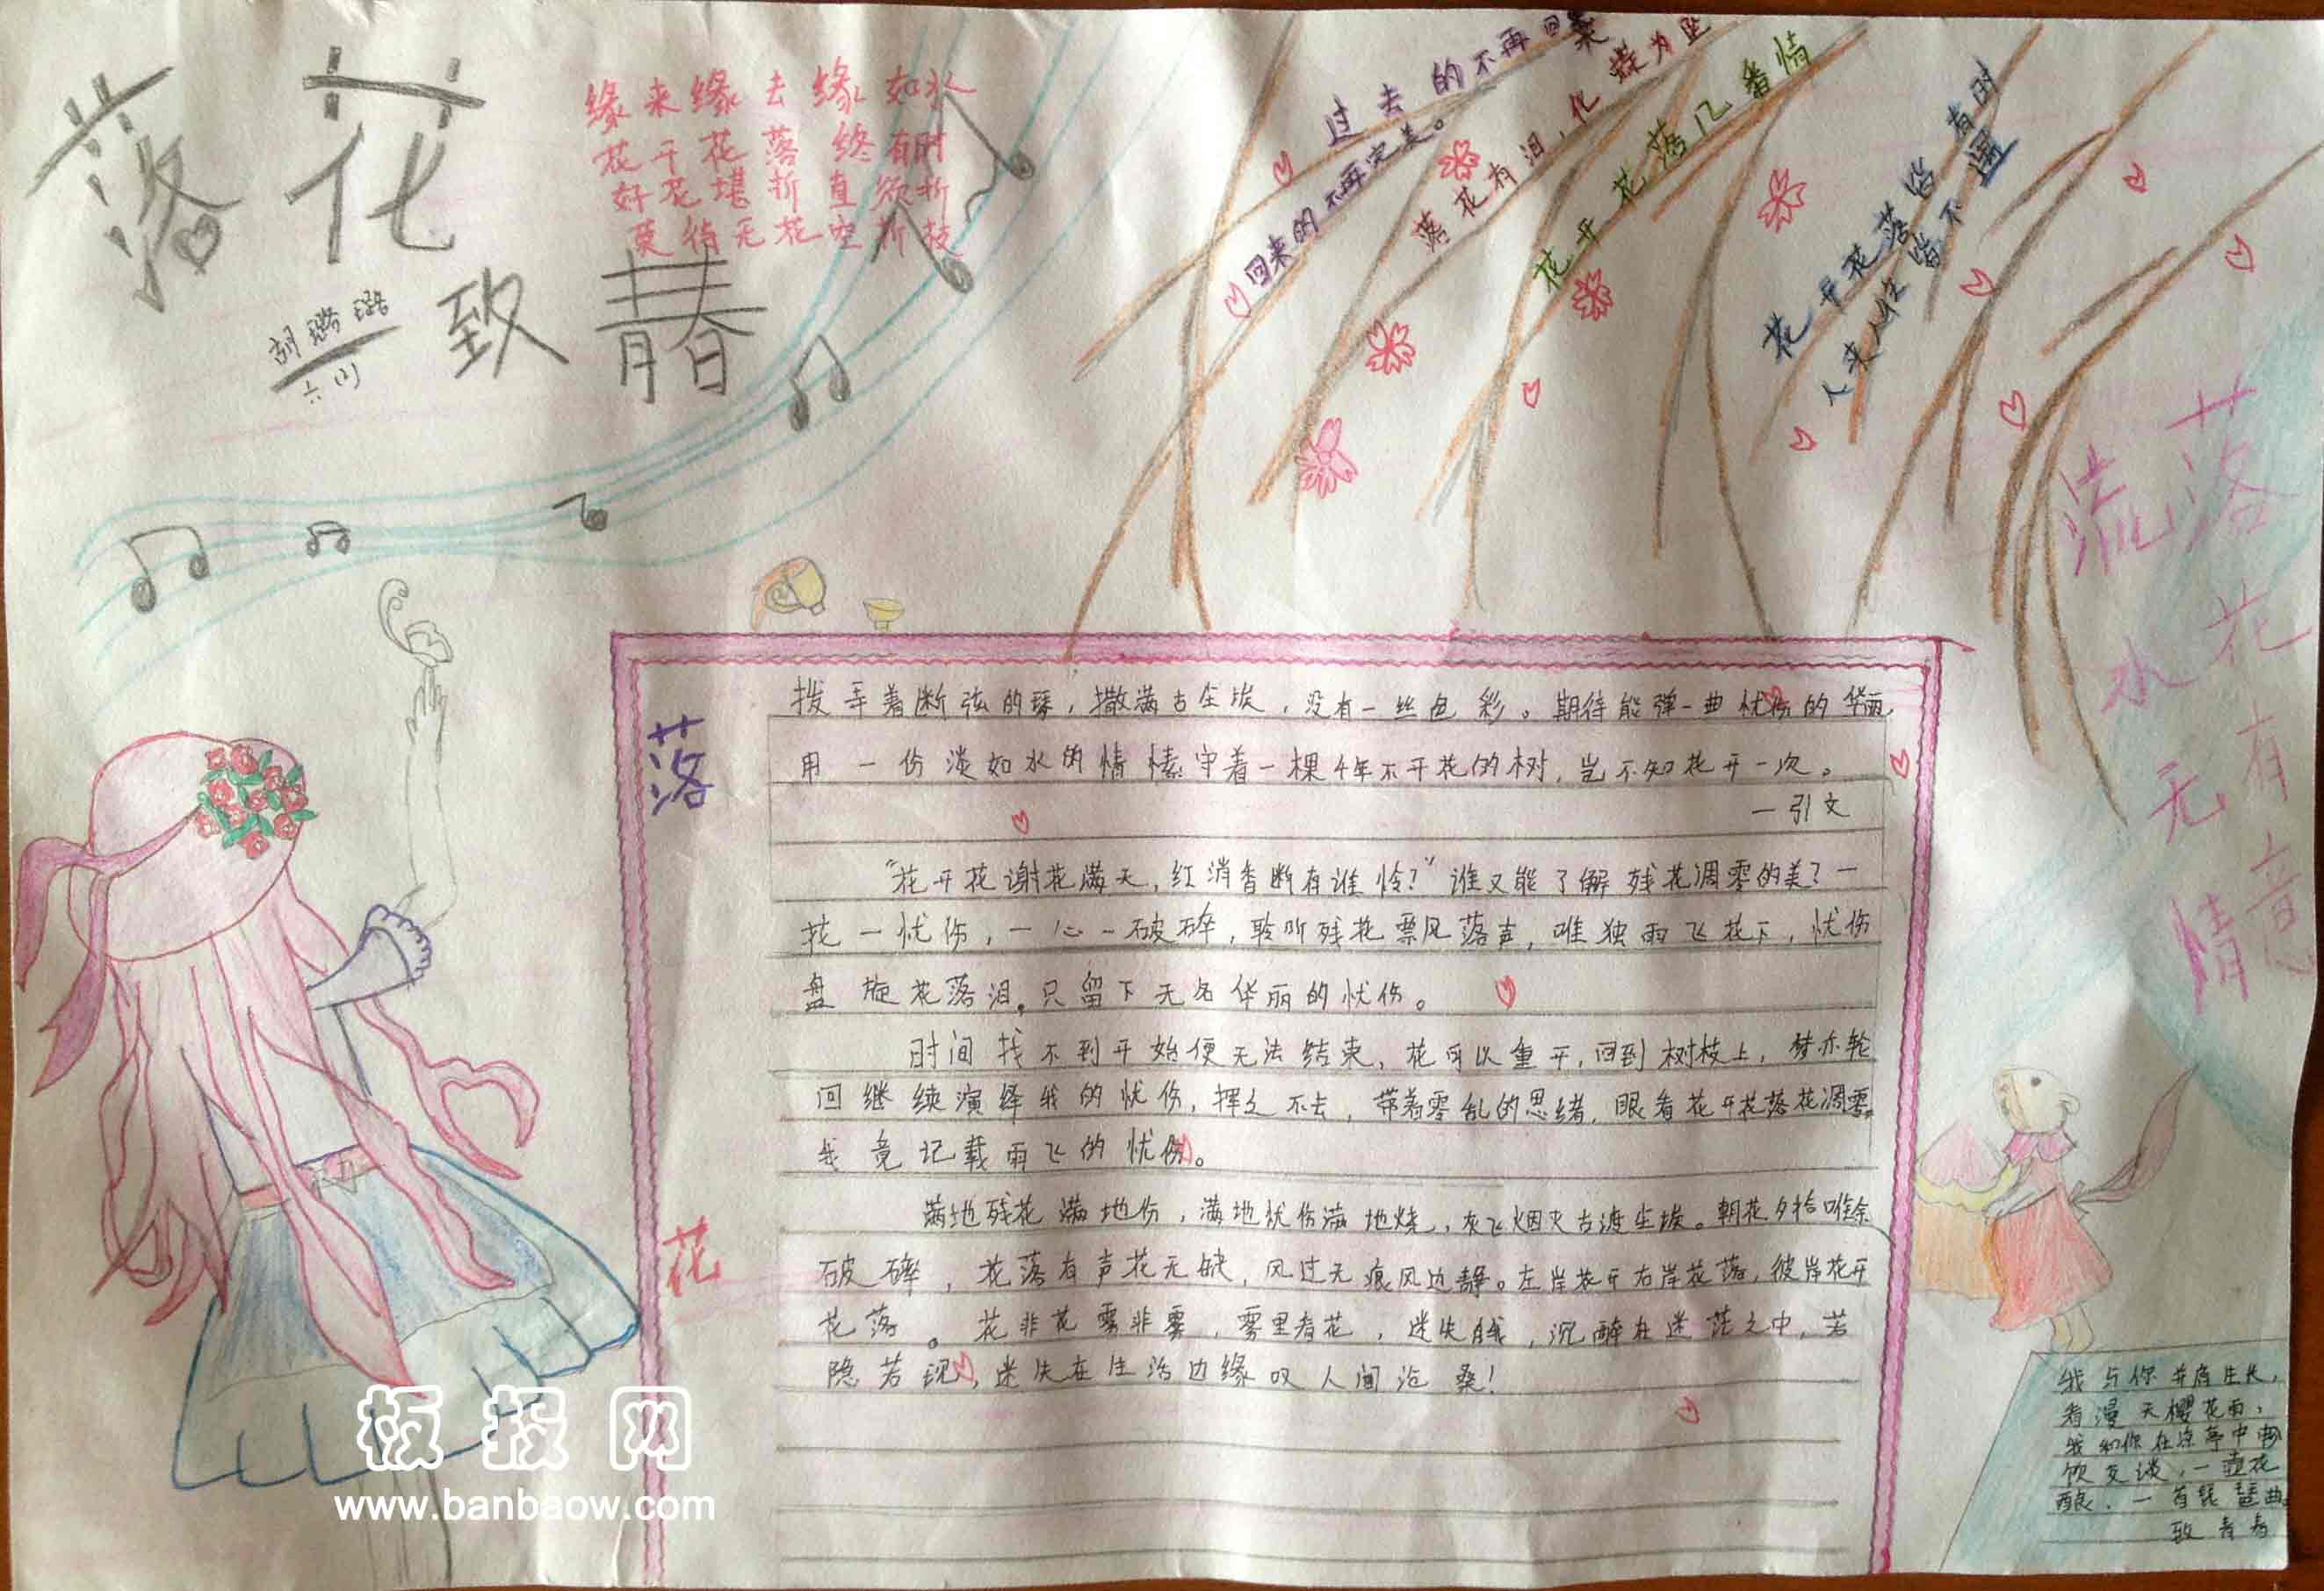 落花
致青春
胡璐璐
六(1)
缘来缘去缘如水
花开花落终有时
好花堪折直须折
莫待无花空折枝
过去的不再回来
回来的不再完美。
落花有泪，化蝶为
花开花落几番情
花开花落皆有时
人来人往皆不遇
落花有意
流水无情
落
花
拨弄着断弦的琴，撒满古尘埃，没有一丝色彩。期待能弹一曲忧伤的华丽，
用一份淡如水的情愫守着一棵4年不开花的树，岂不知花开一次。
—引文
“花开花谢花满天，红消香断有谁怜？”谁又能了解残花凋零的美？一
花一忧伤，一心一破碎，聆听残花票风落声，唯独雨飞花下，忧伤
盘旋花落泪。只留下无名华丽的忧伤。
时间找不到开始便无法结束，花可以重开，回到树枝上，梦亦轮
回继续演绎我的忧伤，挥之不去，带着零乱的思绪，眼看花开花落花凋零。
我竟记载雨飞的忧伤。
满地残花满地伤，满地忧伤满地烧，灰飞烟灭古渡尘埃。朝花夕拾唯余
破碎，花落有声花无缺，风过无痕风边静。左岸花开右岸花落，彼岸花开
花落。花非花雾非雾，雾里看花，迷失自我，沉醉在迷茫之中，若
隐若现，迷失在生活边缘叹人间沧桑！
我与你并肩生长，
看漫天樱花雨，
我和你在凉亭中
饮交谈，一壶花
酿，一首琵琶曲。
致青春
板报网
www.banbaow.com